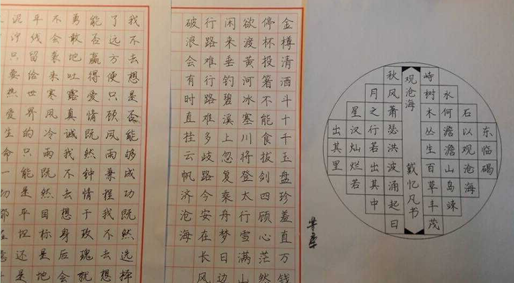 我不去想是否能够成功既然选择
了远方便只顾风雨兼程我不去想
能否赢得爱情既然钟情于玫瑰就
勇敢地吐露真诚我不去想身后会
不会袭来寒风冷雨既然目标是地
平线留给世界的只能是背影
泥泞只要热爱生命一切都在
金樽清酒斗十千玉盘珍羞直万钱
停杯投箸不能食拔剑四顾心茫然
欲渡黄河冰塞川将登太行雪满山
闲来垂钓碧溪上忽复乘舟梦日边
行路难行路难多歧路今安在长风
破浪会有时直挂云帆济沧海
东临碣
石以观沧海
水何澹澹山岛竦
峙树木丛生百草丰茂
观沧海 戴忆凡书
秋风萧瑟洪波涌起日
月之行若出其中
星汉灿烂若
出其里